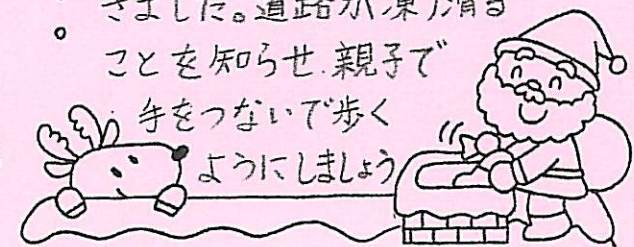 きました。道路が凍り滑る
ことを知らせ、親子で
手をつないで歩く
ようにしましょう